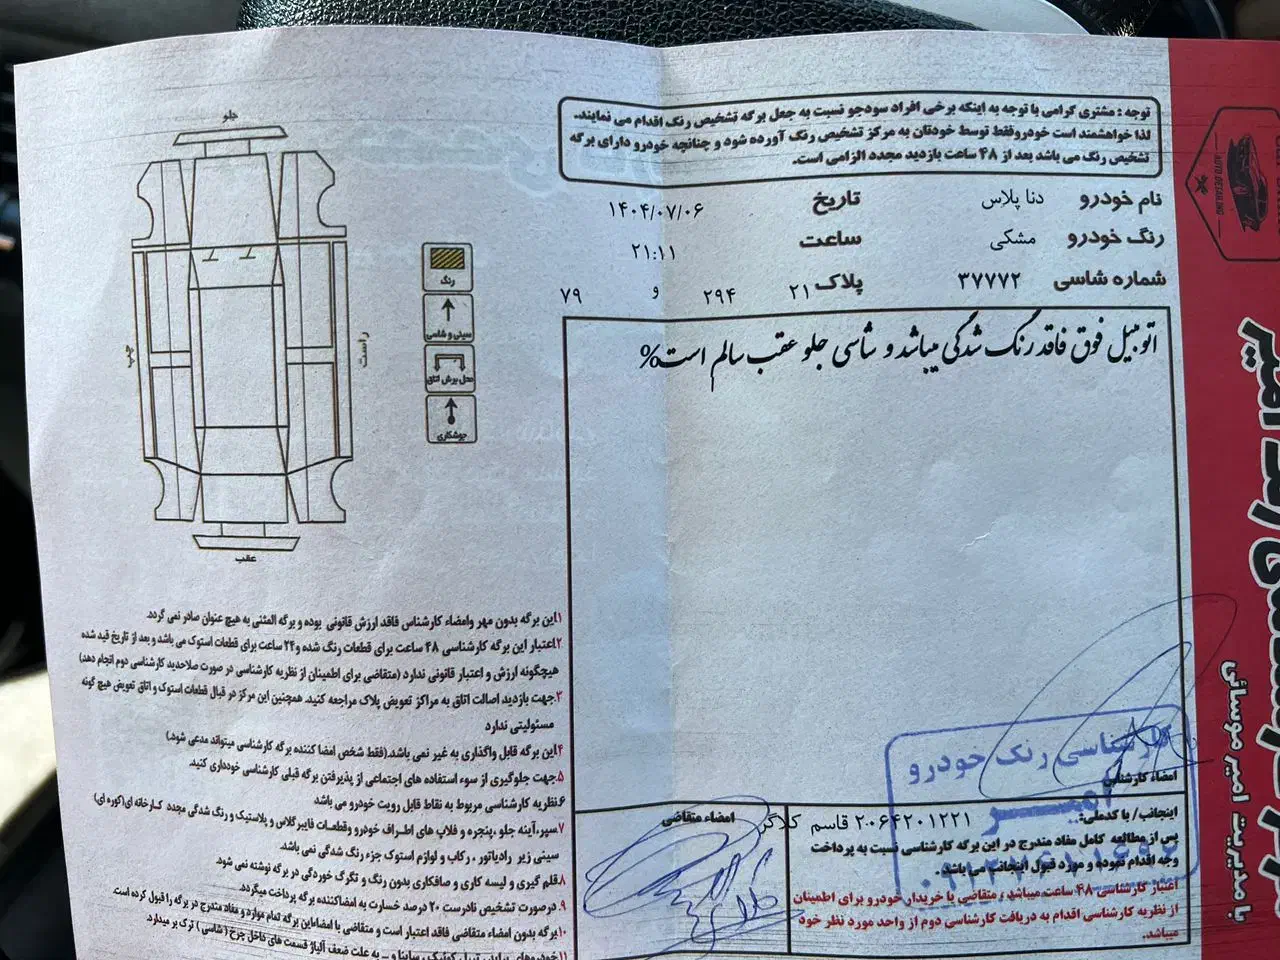 توجه : مشتری گرامی با توجه به اینکه برخی افراد سودجو نسبت به جعل برگه تشخیص رنگ اقدام می نمایند.
لذا خواهشمند است خودروفقط توسط خودتان به مرکز تشخیص رنگ آورده شود و چنانچه خودرو دارای برگه
تشخیص رنگ می باشد بعد از ۴۸ ساعت بازدید مجدد الزامی است.
نام خودرو دنا پلاس تاریخ ۱۴۰۴/۰۷/۰۶
رنگ خودرو مشکی ساعت ۲۱:۱۱
شماره شاسی ۳۷۷۷۲ پلاک ۲۱ ۲۹۴ و ۷۹
اتومبیل فوق فاقد رنگ شدگی میباشد و شاسی جلو عقب سالم است%
جلو
راست
چپ
عقب
رنگ
سینی و شاسی
محل برش اتاق
جوشکاری
۱.این برگه بدون مهر وامضاء کارشناس فاقد ارزش قانونی بوده و برگه المثنی به هیچ عنوان صادر نمی گردد.
۲.اعتبار این برگه کارشناسی ۴۸ ساعت برای قطعات رنگ شده و۲۴ ساعت برای قطعات استوک می باشد و بعد از تاریخ قید شده
هیچگونه ارزش و اعتبار قانونی ندارد (متقاضی برای اطمینان از نظریه کارشناسی در صورت صلاحدید کارشناسی دوم انجام دهد)
۳.جهت بازدید اصالت اتاق به مراکز تعویض پلاک مراجعه کنید. همچنین این مرکز در قبال قطعات استوک و اتاق تعویض هیچ گونه
مسئولیتی ندارد
۴.این برگه قابل واگذاری به غیر نمی باشد.(فقط شخص امضا کننده برگه کارشناسی میتواند مدعی شود.)
۵.جهت جلوگیری از سوء استفاده های اجتماعی از پذیرفتن برگه قبلی کارشناسی خودداری کنید.
۶.نظریه کارشناسی مربوط به نقاط قابل رویت خودرو می باشد
۷.سپر،آینه جلو ،پنجره و فلاپ های اطراف خودرو وقطعات فایبرگلاس و پلاستیک و رنگ شدگی مجدد کارخانه ای(کوره ای)
سینی زیر رادیاتور ، رکاب و لوازم استوک جزء رنگ شدگی نمی باشد.
۸.قلم گیری و لیسه کاری و صافکاری بدون رنگ و تگرگ خوردگی در برگه نوشته نمی شود.
۹.درصورت تشخیص نادرست ۲۰ درصد خسارت به امضاکننده برگه پرداخت میگردد.
۱۰.برگه بدون امضاء متقاضی فاقد اعتبار است و متقاضی با امضااین برگه تمام موارد و مفاد مندرج در برگه را قبول کرده است.
۱۱.خودروهای پراید، تیبا، کوئیک، ساینا و ... به علت ضعف آلیاژ قسمت های داخل چرخ (شاسی) ترک بر میدارد.
کارشناسی رنگ خودرو
امیر
امضاء کارشناس
امضاء متقاضی
اینجانب / با کدملی: ۲۰۶۴۲۰۱۲۲۱ قاسم کلاگر
پس از مطالعه کامل مفاد مندرج در این برگه کارشناسی نسبت به پرداخت
وجه اقدام نموده و مورد قبول اینجانب می باشد .
اعتبار کارشناسی ۴۸ ساعت میباشد ، متقاضی یا خریدار خودرو برای اطمینان
از نظریه کارشناسی اقدام به دریافت کارشناسی دوم از واحد مورد نظر خود
میباشد.
AUTO DETAILING
امیر
با مدیریت امیر موسائی